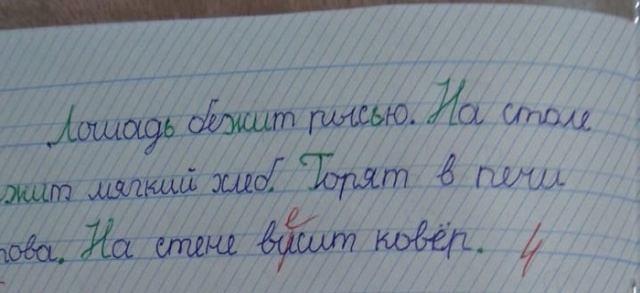 Лошадь бежит рысью. На столе
жит мягкий хлеб. Горят в печи
рова. На стене висит ковёр. 4